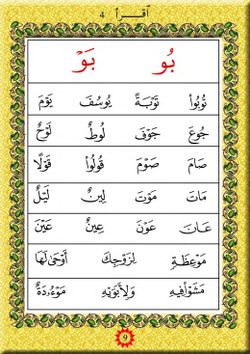 4 اقرأ
بُو بَوْ
تُوبُوا تَوْبَةً يُوسُفَ يَوْمَ
جُوعَ جَوْفَ لُوطٌ لَوْحٌ
صَامَ صَوْمَ قُولُوا قَوْلًا
مَاتَ مَوْتَ لِينٌ لَيْلٌ
عَانَ عَوْنَ عِينٌ عَيْنَ
مَوْعِظَةٍ لِزَوْجِكَ أَوْحَىٰ لَهَا
مَثْوَاهُ فِيهِ وَلِأَبَوَيْهِ مَوْءُدَةُ
9